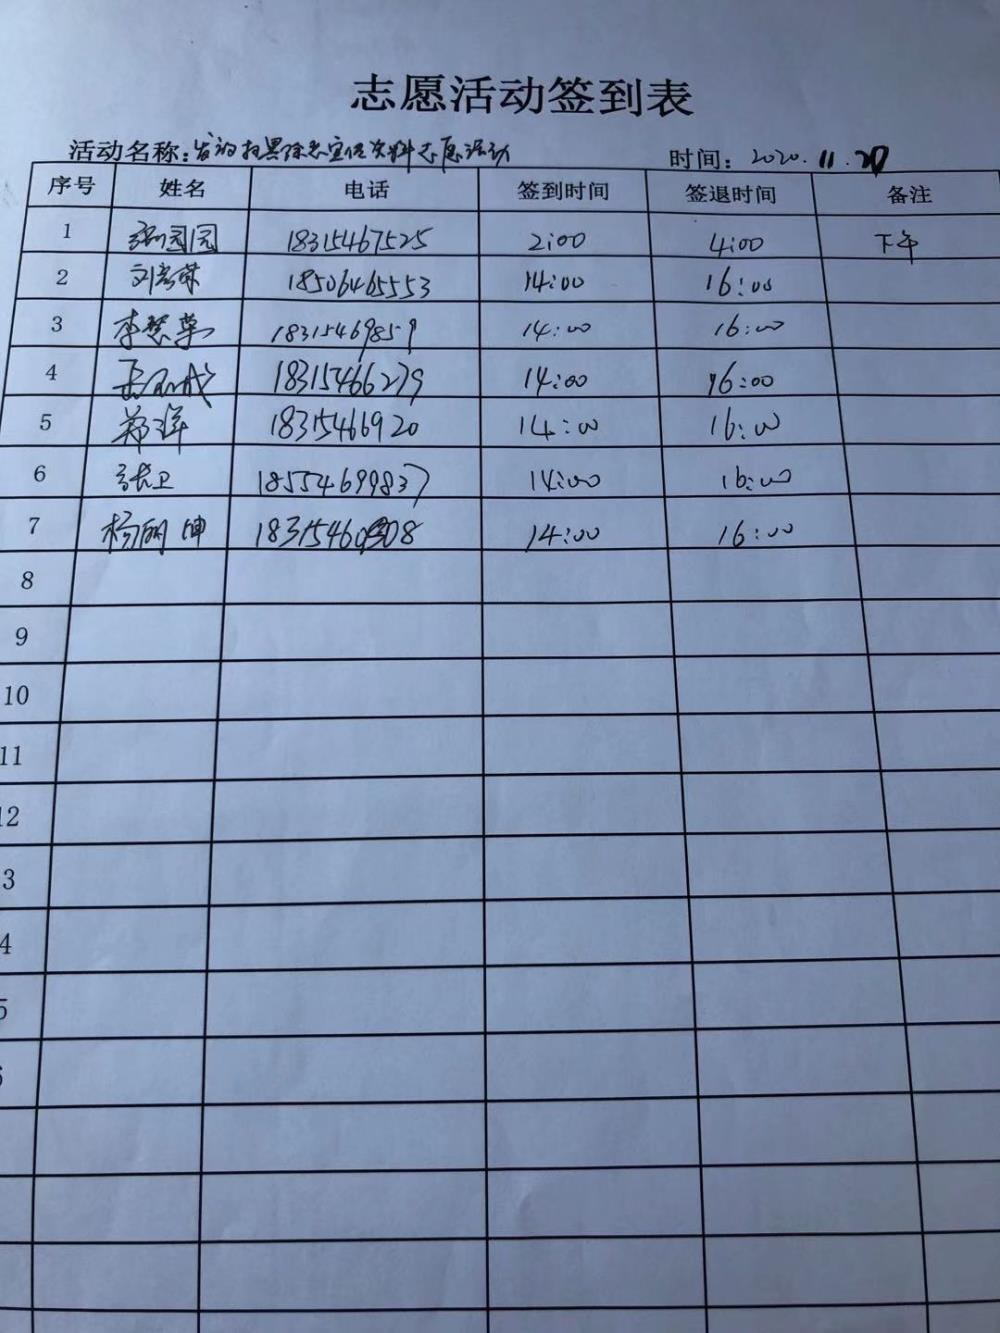 志愿活动签到表
活动名称：发放扫黑除恶宣传资料志愿活动 时间：2020.11.20
序号 姓名 电话 签到时间 签退时间 备注
1 张园园 18315467525 2:00 4:00 下午
2 刘 荣 18506465553 14:00 16:00
3 李慧萍 18315469859 14:00 16:00
4 18315466279 14:00 16:00
5 郑洋 18315466920 14:00 16:00
6 张卫 18554699837 14:00 16:00
7 杨丽坤 14:00 16:00
8
9
10
11
12
3
4
5
6